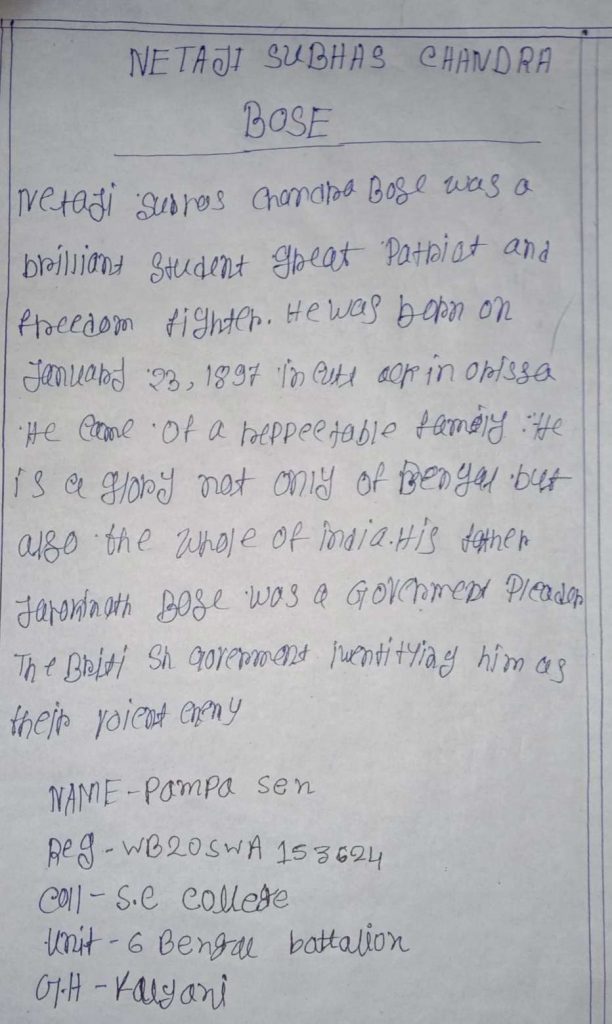 NETAJI SUBHAS CHANDRA
BOSE
Netaji Subhas Chandra Bose was a
brilliant Student great Patriot and
freedom fighter. He was born on
January 23, 1897 in Cutt ack in orissa
He Came of a reppectable family. He
is a glory not only of Bengal but
also the whole of india. His father
Janokinath Bose was a Government Pleader
The Briti sh government iwentifying him as
their voient eneny
NAME - Pampa Sen
Reg - WB20SWA 153624
Coll - S.C College
Unit - 6 Bengal battalion
G.H - Kalyani